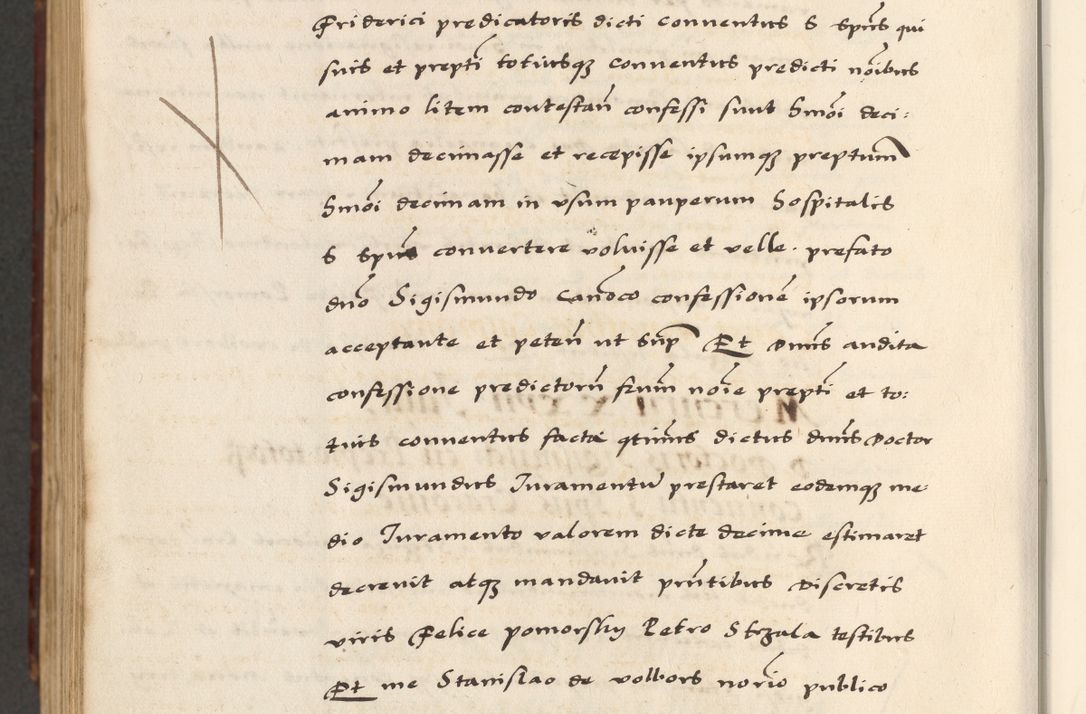 Friderici predicatoris dicti conventus S Sp̄us qui
suis et prepti totiusqȝ conventus predicti nōibus
animo litem contestan̄ confessi sunt Hm̄oi deci:
mam decimasse et recepisse ipsumqȝ preptum
Hm̄oi decimam in usum pauperum Hospitalis
S Sp̄us convertere voluisse et velle. prefato
dn̄o Sigismundo Can̄oco confessionē ipsorum
acceptante et peten̄ ut Sup̄ Et Dn̄us audita
confessione predictorū frūm nōie prepti et to:
tius conventus facta qtinus dictus dn̄us Doctor
Sigismundus Iuramentū prestaret eodemqȝ me
dio Iuramento valorem dicte decime estimaret
decrevit atqȝ mandavit pn̄tibus Discretis
viris Felice pomorsky Petro Strzala testibus
Et me Stanislao de volbors norio publico